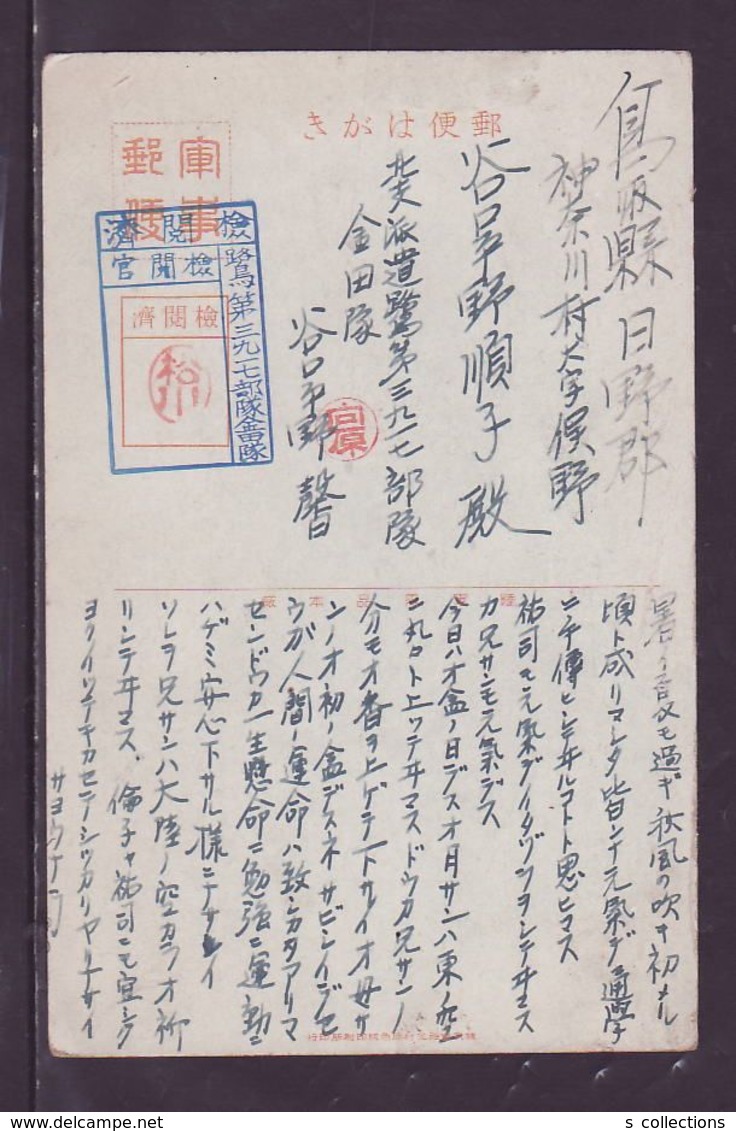 郵便はがき
軍事
郵便
檢閱濟
檢閱官
鷺第三九一七部隊金田隊
檢閱濟
鳥取縣日野郡
神奈川村大字俣野
野順子殿
派遣鷺第三九一七部隊
金田隊
野馨
暑イ暑サモ過ギ秋風ノ吹キ初メル
頃ト成リマシタ皆シテ元氣デ通學
ニ手傳ヒシテヰルコトト思ヒマス
祐司モ元氣デイタヅラヲシテヰマス
カ兄サンモ元氣デス
今日ハオ盆ノ日デスオ月サンハ東ノ空
ニ丸々ト上ツテヰマスドウカ兄サンノ
分モオ香ヲ上ゲテ下サイオ母サ
ンノオ初ノ盆デスネサビシイデセ
ウガ人間ノ運命ハ致シカタアリマ
センドウカ一生懸命ニ勉強ニ運動ニ
ハゲミ安心下サル様ニナサイ
ソレヲ兄サンハ大陸ノ空カラオ祈
リシテヰマス、倫子ヤ祐司ニモ宜シク
ヨクイツテキカセテシツカリヤリナサイ
サヨウナラ
s collections